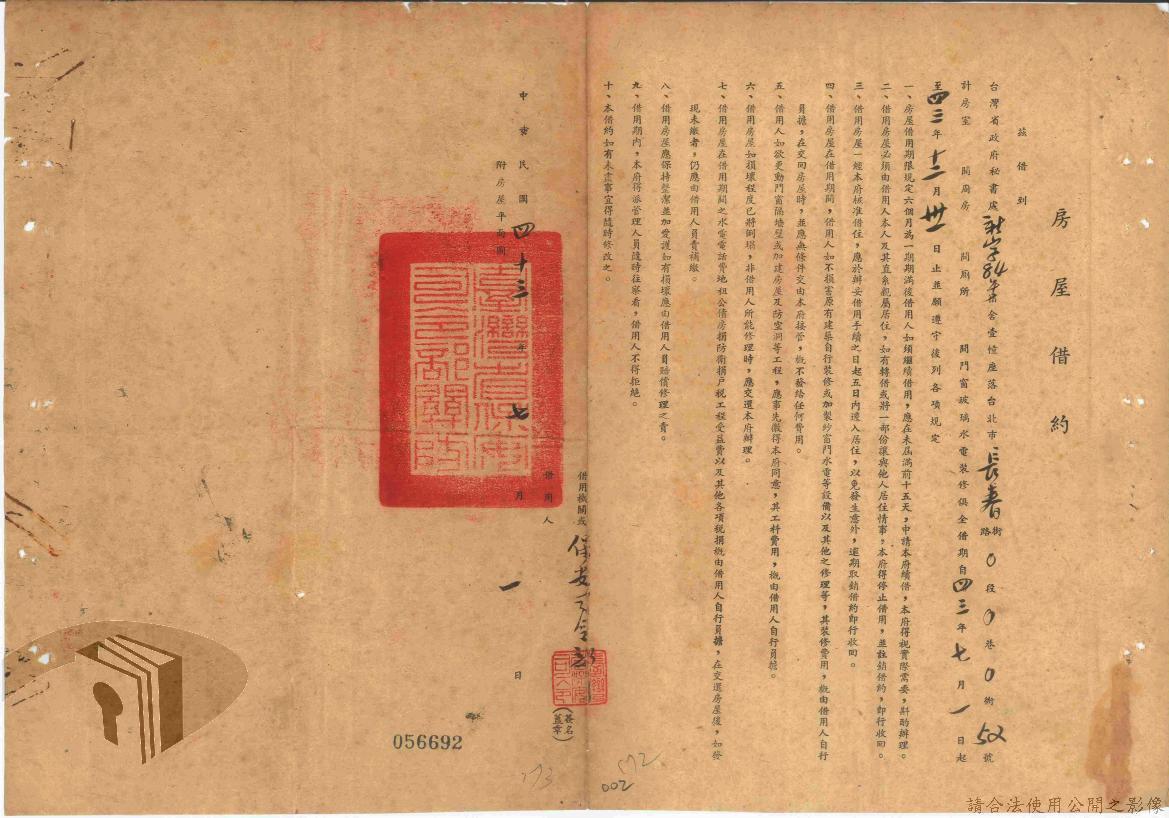 房屋借約
茲借到
台灣省政府秘書處秘字84年集舍壹憧座落台北市長春街路0段0巷0衖52號
計房室　間廚房　間廁所　間門窗玻璃水電裝修俱全借期自四三年七月一日起
至四三年十二月卅一日止並願遵守後列各項規定
一、房屋借用期限規定六個月為一期期滿後借用人如須繼續借用，應在未屆滿前十五天，申請本府續借，本府得視實際需要，斟酌辦理。
二、借用房屋必須由借用人本人及其直系親屬居住，如有轉借或將一部份讓與他人居住情事，本府得停止借用，並註銷借約，即行收回。
三、借用房屋一經本府核准借住，應於辦妥借用手續之日起五日內遷入居住，以免發生意外，逾期取銷借約即行收回。
四、借用房屋在借用期間，借用人如不損害原有建築自行裝修或加製紗窗門水電等設備以及其他之修理等，其裝修費用，概由借用人自行
負擔，在交回房屋時，並應無條件交由本府接管，概不發給任何費用。
五、借用人如欲更動門窗隔墻壁或加建房屋及防空洞等工程，應事先徵得本府同意，其工料費用，概由借用人自行負擔。
六、借用房屋如損壞程度已將倒塌，非借用人所能修理時，應交還本府辦理。
七、借用房屋在借用期間之水電電話費地租公債房捐防衛捐戶稅工程受益費以及其他各項稅捐概由借用人自行負擔，在交還房屋後，如發
現未繳者，仍應由借用人員責補繳。
八、借用房屋應保持整潔並加愛護如有損壞應由借用人員賠償修理之責。
九、借用期內，本府得派管理人員隨時往察看，借用人不得拒絕。
十、本借約如有未盡事宜得隨時修改之。
借用機關或
借用人
保安司令部
（簽名蓋章）
中華民國四十三年七月一日
附房屋平面圖
臺灣省保安司令部關防
056692
002
572
請合法使用公開之影像